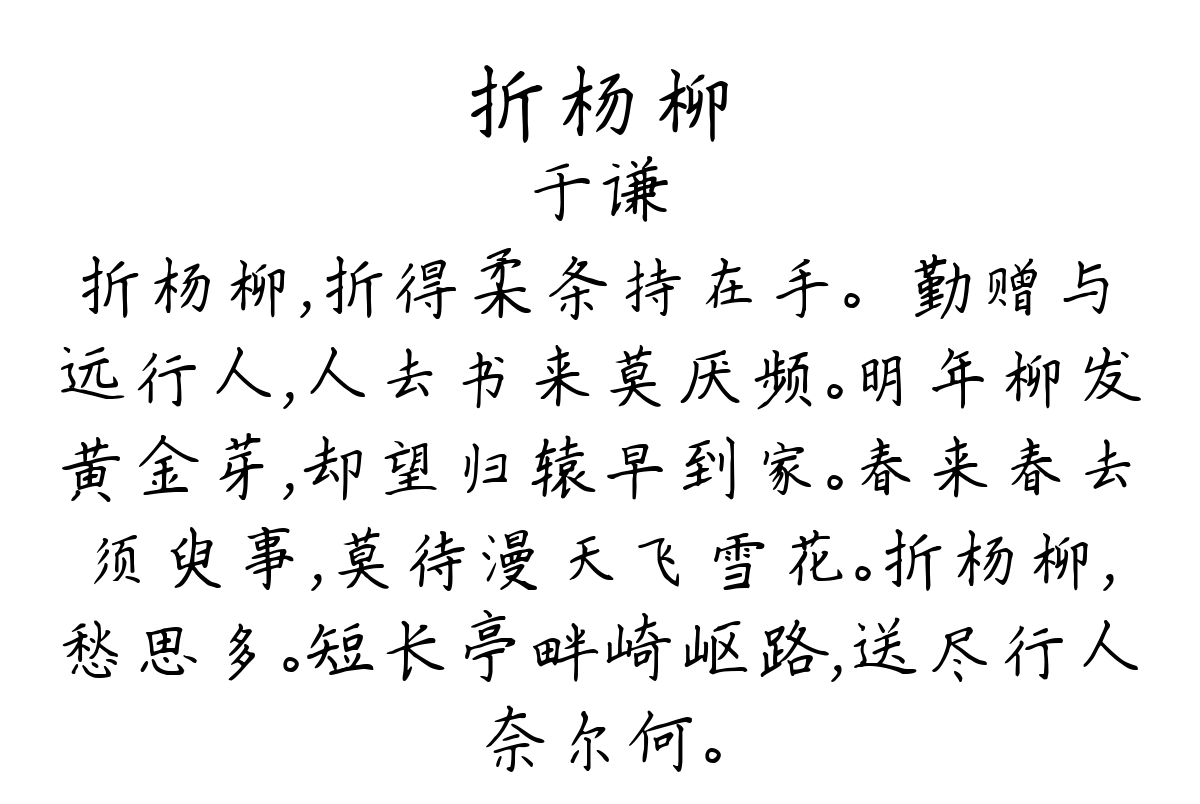 折杨柳
于谦
折杨柳,折得柔条持在手。勤赠与
远行人,人去书来莫厌频。明年柳发
黄金芽,却望归辕早到家。春来春去
须臾事,莫待漫天飞雪花。折杨柳,
愁思多。短长亭畔崎岖路,送尽行人
奈尔何。